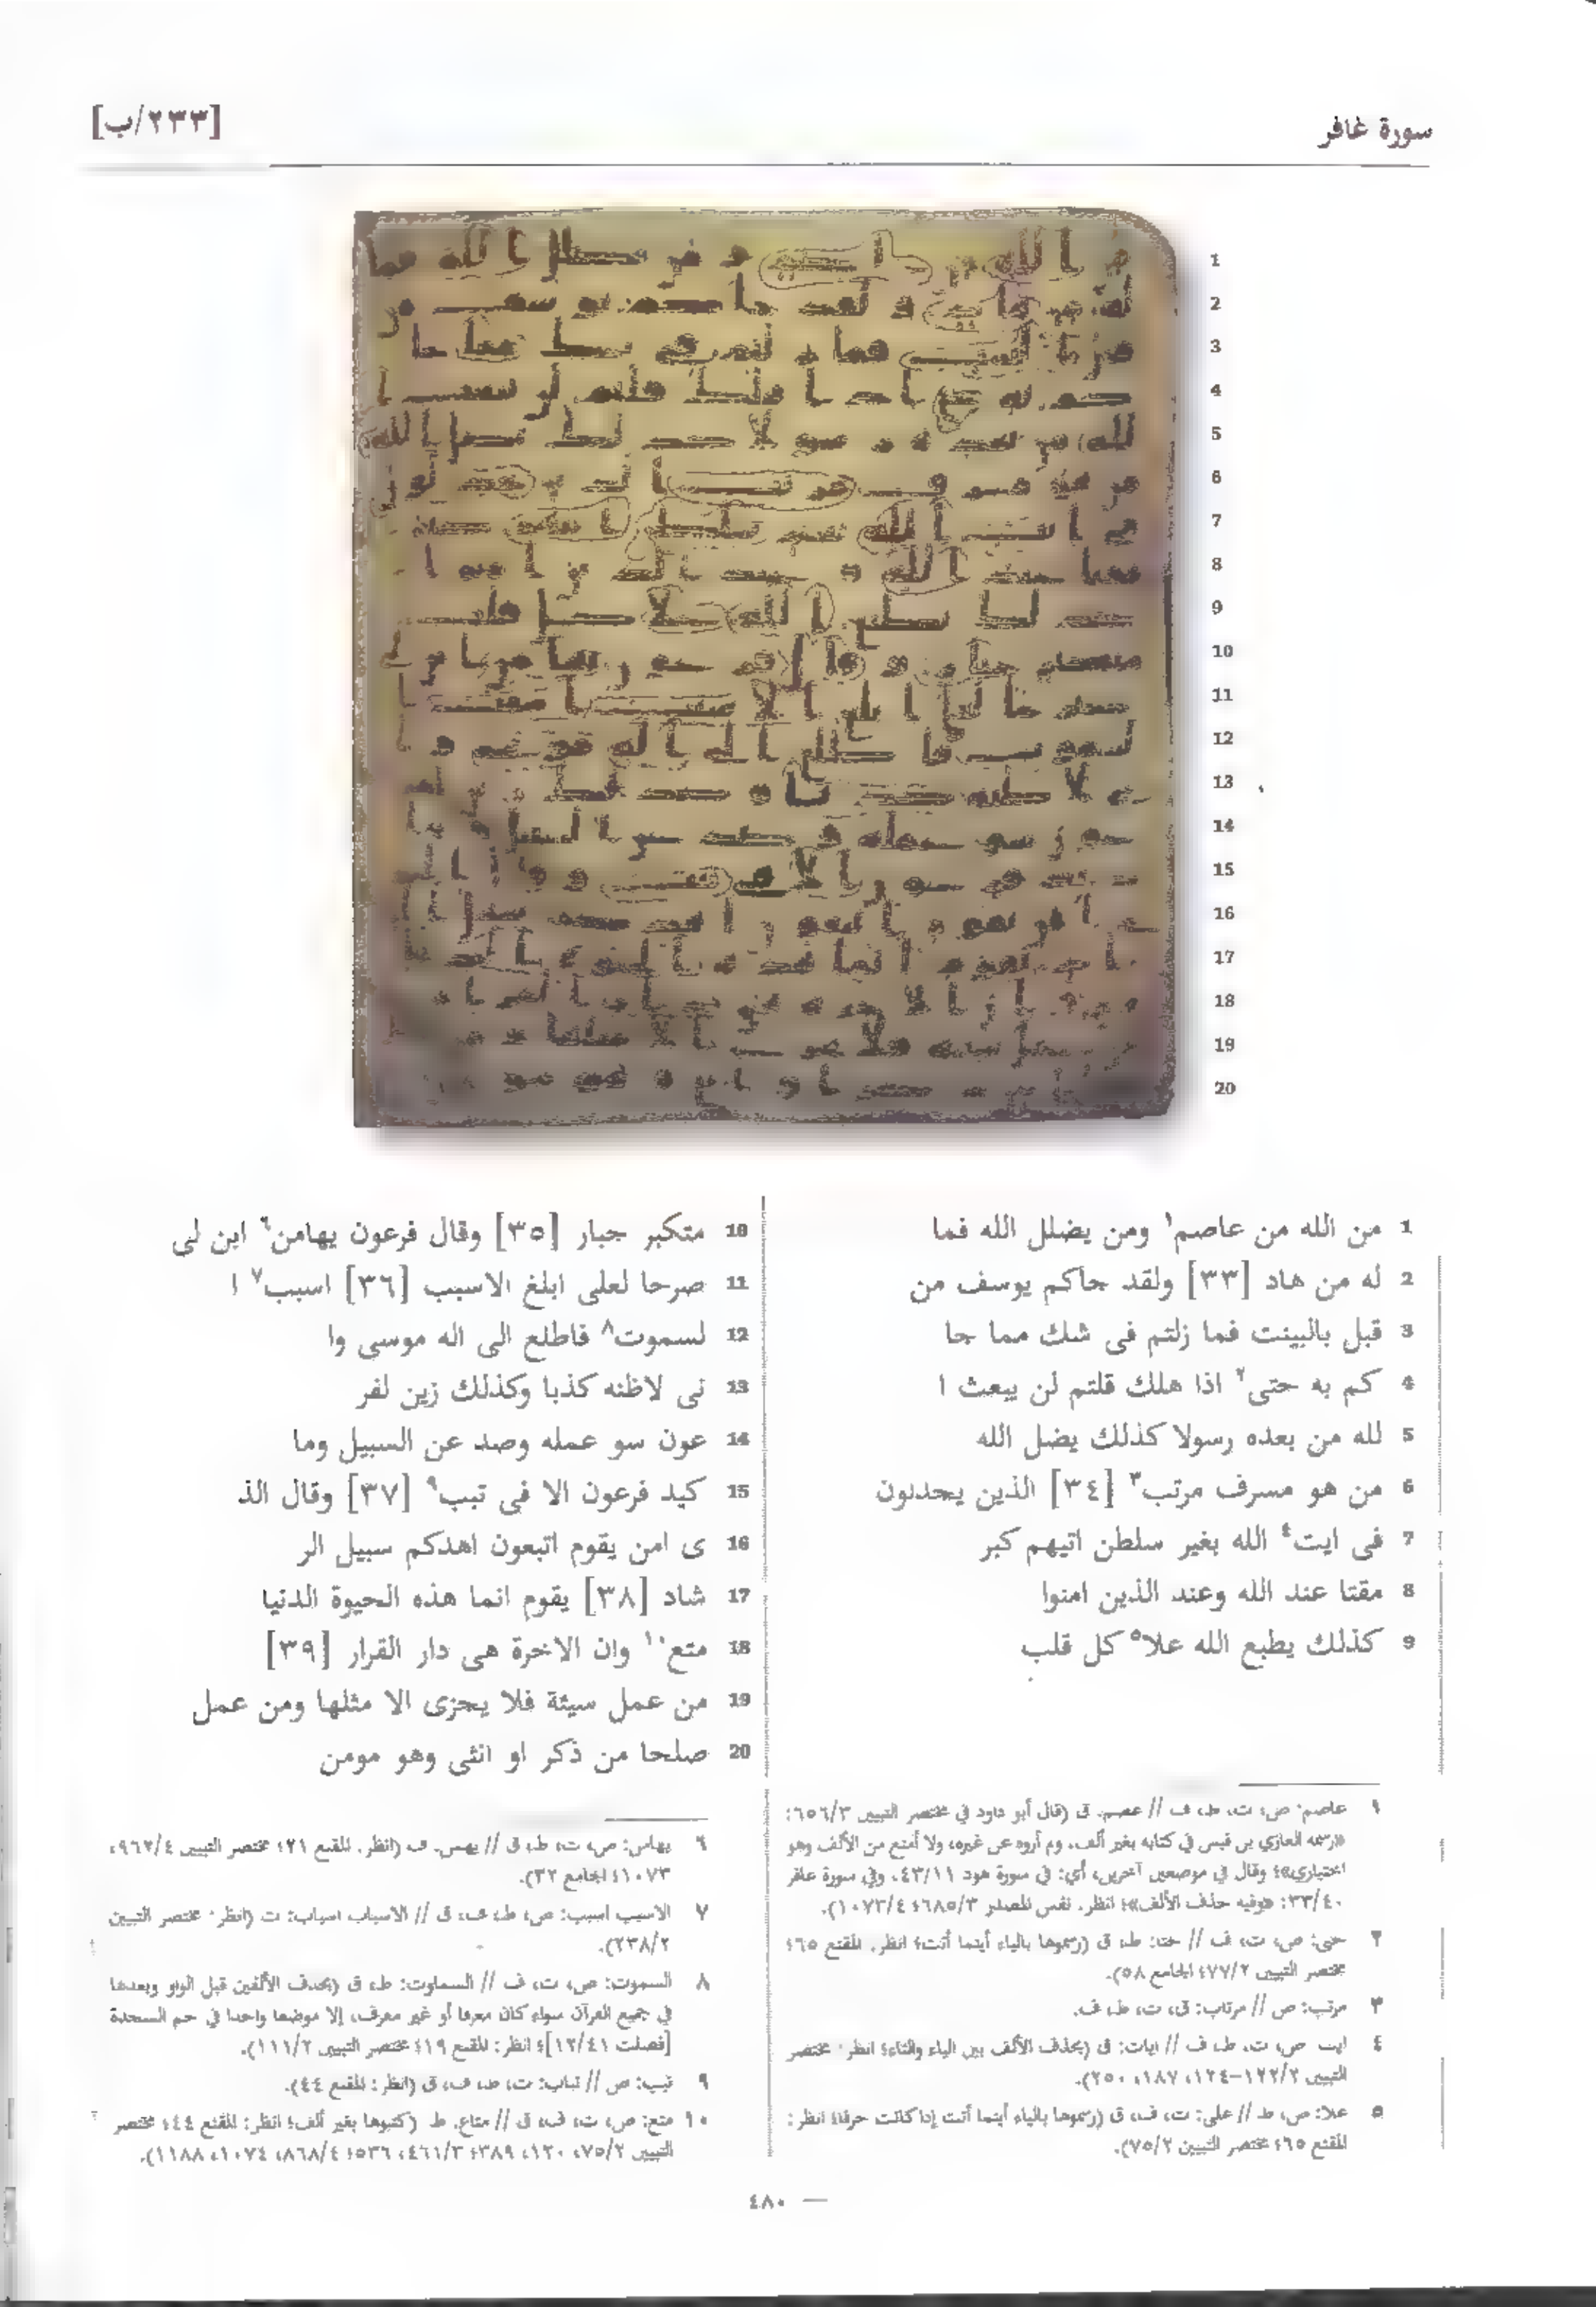 سورة غافر
[٢٣٣/ب]
1 من الله من عاصم١ ومن يضلل الله فما
2 له من هاد [٣٣] ولقد جاكم يوسف من
3 قبل بالبينت فما زلتم فى شك مما جا
4 كم به حتى٢ اذا هلك قلتم لن يبعث ا
5 لله من بعده رسولا كذلك يضل الله
6 من هو مسرف مرتب٣ [٣٤] الذين يجدلون
7 فى ايت٤ الله بغير سلطن اتيهم كبر
8 مقتا عند الله وعند الذين امنوا
9 كذلك يطبع الله علا٥ كل قلب
10 متكبر جبار [٣٥] وقال فرعون يهامن٦ ابن لى
11 صرحا لعلى ابلغ الاسبب [٣٦] اسبب٧ ا
12 لسموت٨ فاطلع الى اله موسى وا
13 نى لاظنه كذبا وكذلك زين لفر
14 عون سو عمله وصد عن السبيل وما
15 كيد فرعون الا فى تبب٩ [٣٧] وقال الذ
16 ى امن يقوم اتبعون اهدكم سبيل الر
17 شاد [٣٨] يقوم انما هذه الحيوة الدنيا
18 متع١٠ وان الاخرة هى دار القرار [٣٩]
19 من عمل سيئة فلا يجزى الا مثلها ومن عمل
20 صلحا من ذكر او انثى وهو مومن
١ عاصم: ص، ت، ط، ف // عصم: ق (قال أبو داود في مختصر التبيين ٦٥٦/٣:
«رسمه الغازي بن قيس في كتابه بغير ألف، ولم أروه عن غيره، ولا أمنع من الألف وهو
اختياري»؛ وقال في موضعين آخرين، أي: في سورة هود ٤٣/١١، وفي سورة غافر
٣٣/٤٠: «وفيه حذف الألف»؛ انظر. نفس المصدر ٦٨٥/٣؛ ١٠٧٣/٤).
٢ حتى: ص، ت، ف // حتا: ط، ق (رسموها بالياء أينما أتت؛ انظر. المقنع ٦٥؛
مختصر التبيين ٧٧/٢؛ الجامع ٥٨).
٣ مرتب: ص // مرتاب: ق، ت، ط، ف.
٤ ايت: ص، ت، ط، ف // ايات: ق (بحذف الألف بين الياء والتاء؛ انظر: مختصر
التبيين ١٢٢/٢-١٢٤، ١٨٧، ٢٥٠).
٥ علا: ص، ط // على: ت، ف، ق (رسموها بالياء أينما أتت إذا كانت حرفا؛ انظر:
المقنع ٦٥؛ مختصر التبيين ٧٥/٢).
٦ يهامن: ص، ت، ط، ق // يهمن: ف (انظر. المقنع ٢١؛ مختصر التبيين ٩٦٢/٤،
١٠٧٣؛ الجامع ٣٢).
٧ الاسبب اسبب: ص، ط، ف، ق // الاسباب اسباب: ت (انظر: مختصر التبيين
٢٣٨/٢).
٨ السموت: ص، ت، ف // السماوت: ط، ق (بحذف الألفين قبل الواو وبعدها
في جميع القرآن سواء كان معرفا أو غير معرف، إلا موضعا واحدا في حم السجدة
[فصلت ١٢/٤١]؛ انظر: المقنع ١٩؛ مختصر التبيين ١١١/٢).
٩ تبب: ص // تباب: ت، ط، ف، ق (انظر: المقنع ٤٤).
١٠ متع: ص، ت، ف، ق // متاع: ط (كتبوها بغير ألف؛ انظر: المقنع ٤٤؛ مختصر
التبيين ٧٥/٢، ١٢٠، ٣٨٩؛ ٤٦١/٣، ٥٣٦؛ ٨٦٨/٤، ١٠٧٤، ١١٨٨).
— ٤٨٠